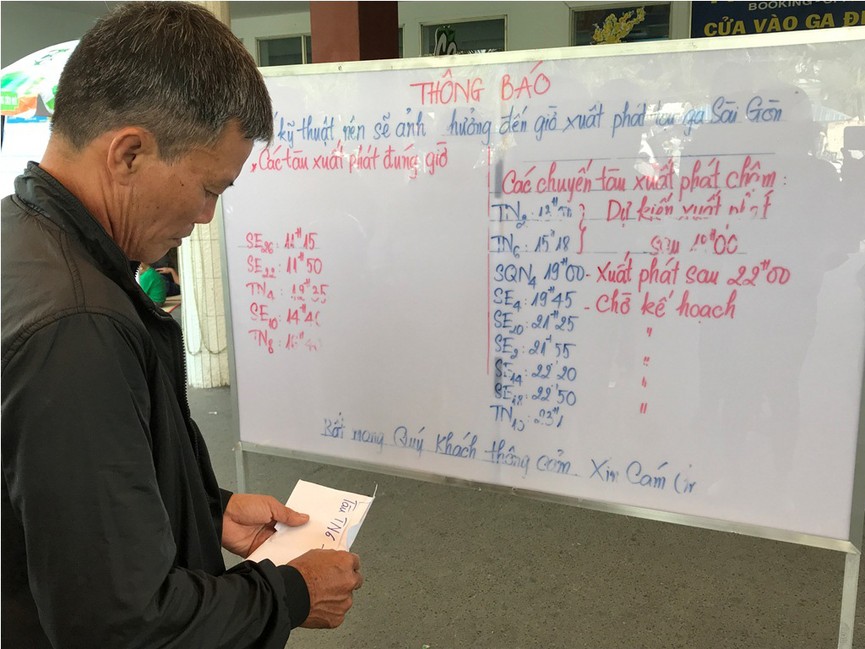 BOOKING
CỬA VÀO GA ĐI
THÔNG BÁO
kỹ thuật nên sẽ ảnh hưởng đến giờ xuất phát tại ga Sài Gòn
Các tàu xuất phát đúng giờ
SE26: 11H15
SE22: 11H50
TN4:
SE10: 14H4
TN8:
Các chuyến tàu xuất phát chậm:
TN2: } Dự kiến xuất phát
TN6: 15H18 } sau
SQN4 19H00 - Xuất phát sau 22H00
SE4: 19H45 - Chờ kế hoạch
SE20: 21H25 "
SE2: 21H55 "
SE14: 22H20 "
SE18: 22H50 "
TN10: 23H
mong Quý Khách thông cảm Xin Cám
Tàu TN6 -